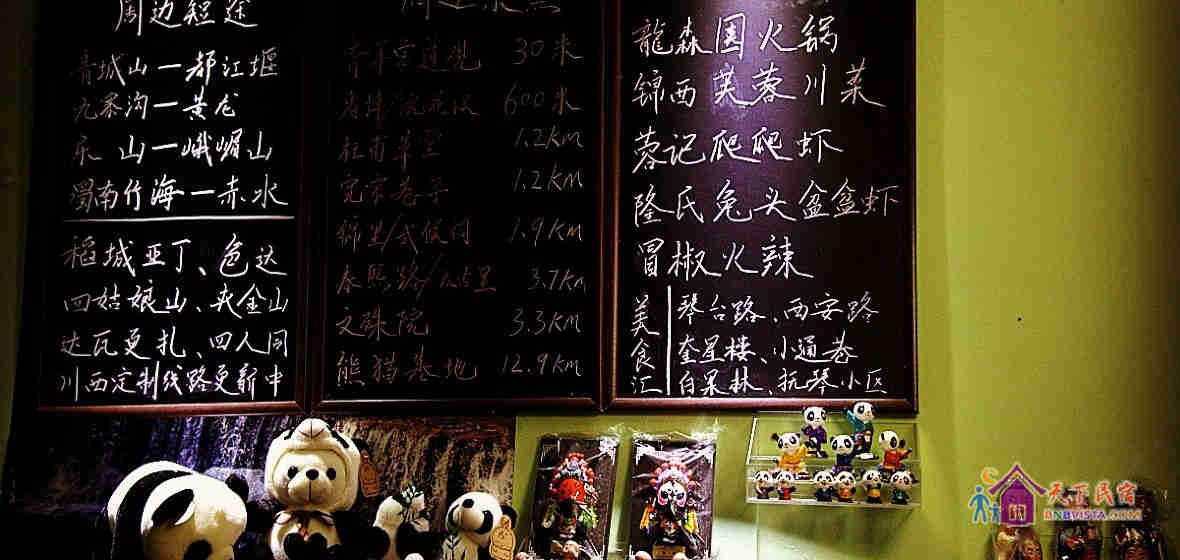 周边短途
青城山一都江堰
九寨沟一黄龙
乐山一峨嵋山
蜀南竹海一赤水
稻城亚丁、色达
四姑娘山、夹金山
达瓦更扎、四人同
川西定制线路更新中
30米
600米
杜甫草堂 1.2KM
宽窄巷子 1.2KM
锦里/武侯祠 1.9KM
春熙路/太古里 3.7Km
文殊院 3.3KM
熊猫基地 12.9KM
龍森园火锅
锦西芙蓉川菜
蓉记爬爬虾
隆氏兔头盆盆虾
冒椒火辣
美食汇
琴台路、西安路
奎星楼、小通巷
白果林、抚琴小区
天下民宿
BNBVISTA.COM